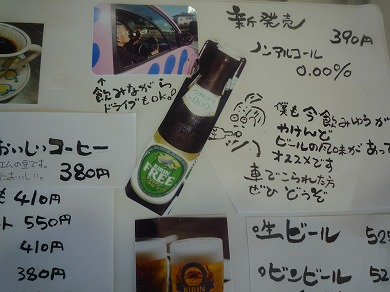 新発売
390円
ノンアルコール
0.00%
↑
飲みながら
ドライブもOK!
僕も今、飲みゆうが
やけんど
ビールの風味があって
オススメです
車でこられた方
ぜひどうぞ
FREE
おいしいコーヒー
380円
410円
ト 550円
410円
380円
生ビール 525
ビンビール 52
KIRIN